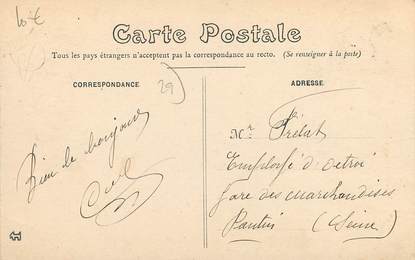 10 €
Carte Postale
Tous les pays étrangers n'acceptent pas la correspondance au recto. (Se renseigner à la poste)
CORRESPONDANCE
29
ADRESSE
Mr Prélat
Bien le bonjour
Employé d'Octroi
Gare des Marchandises
Pantin (Seine)